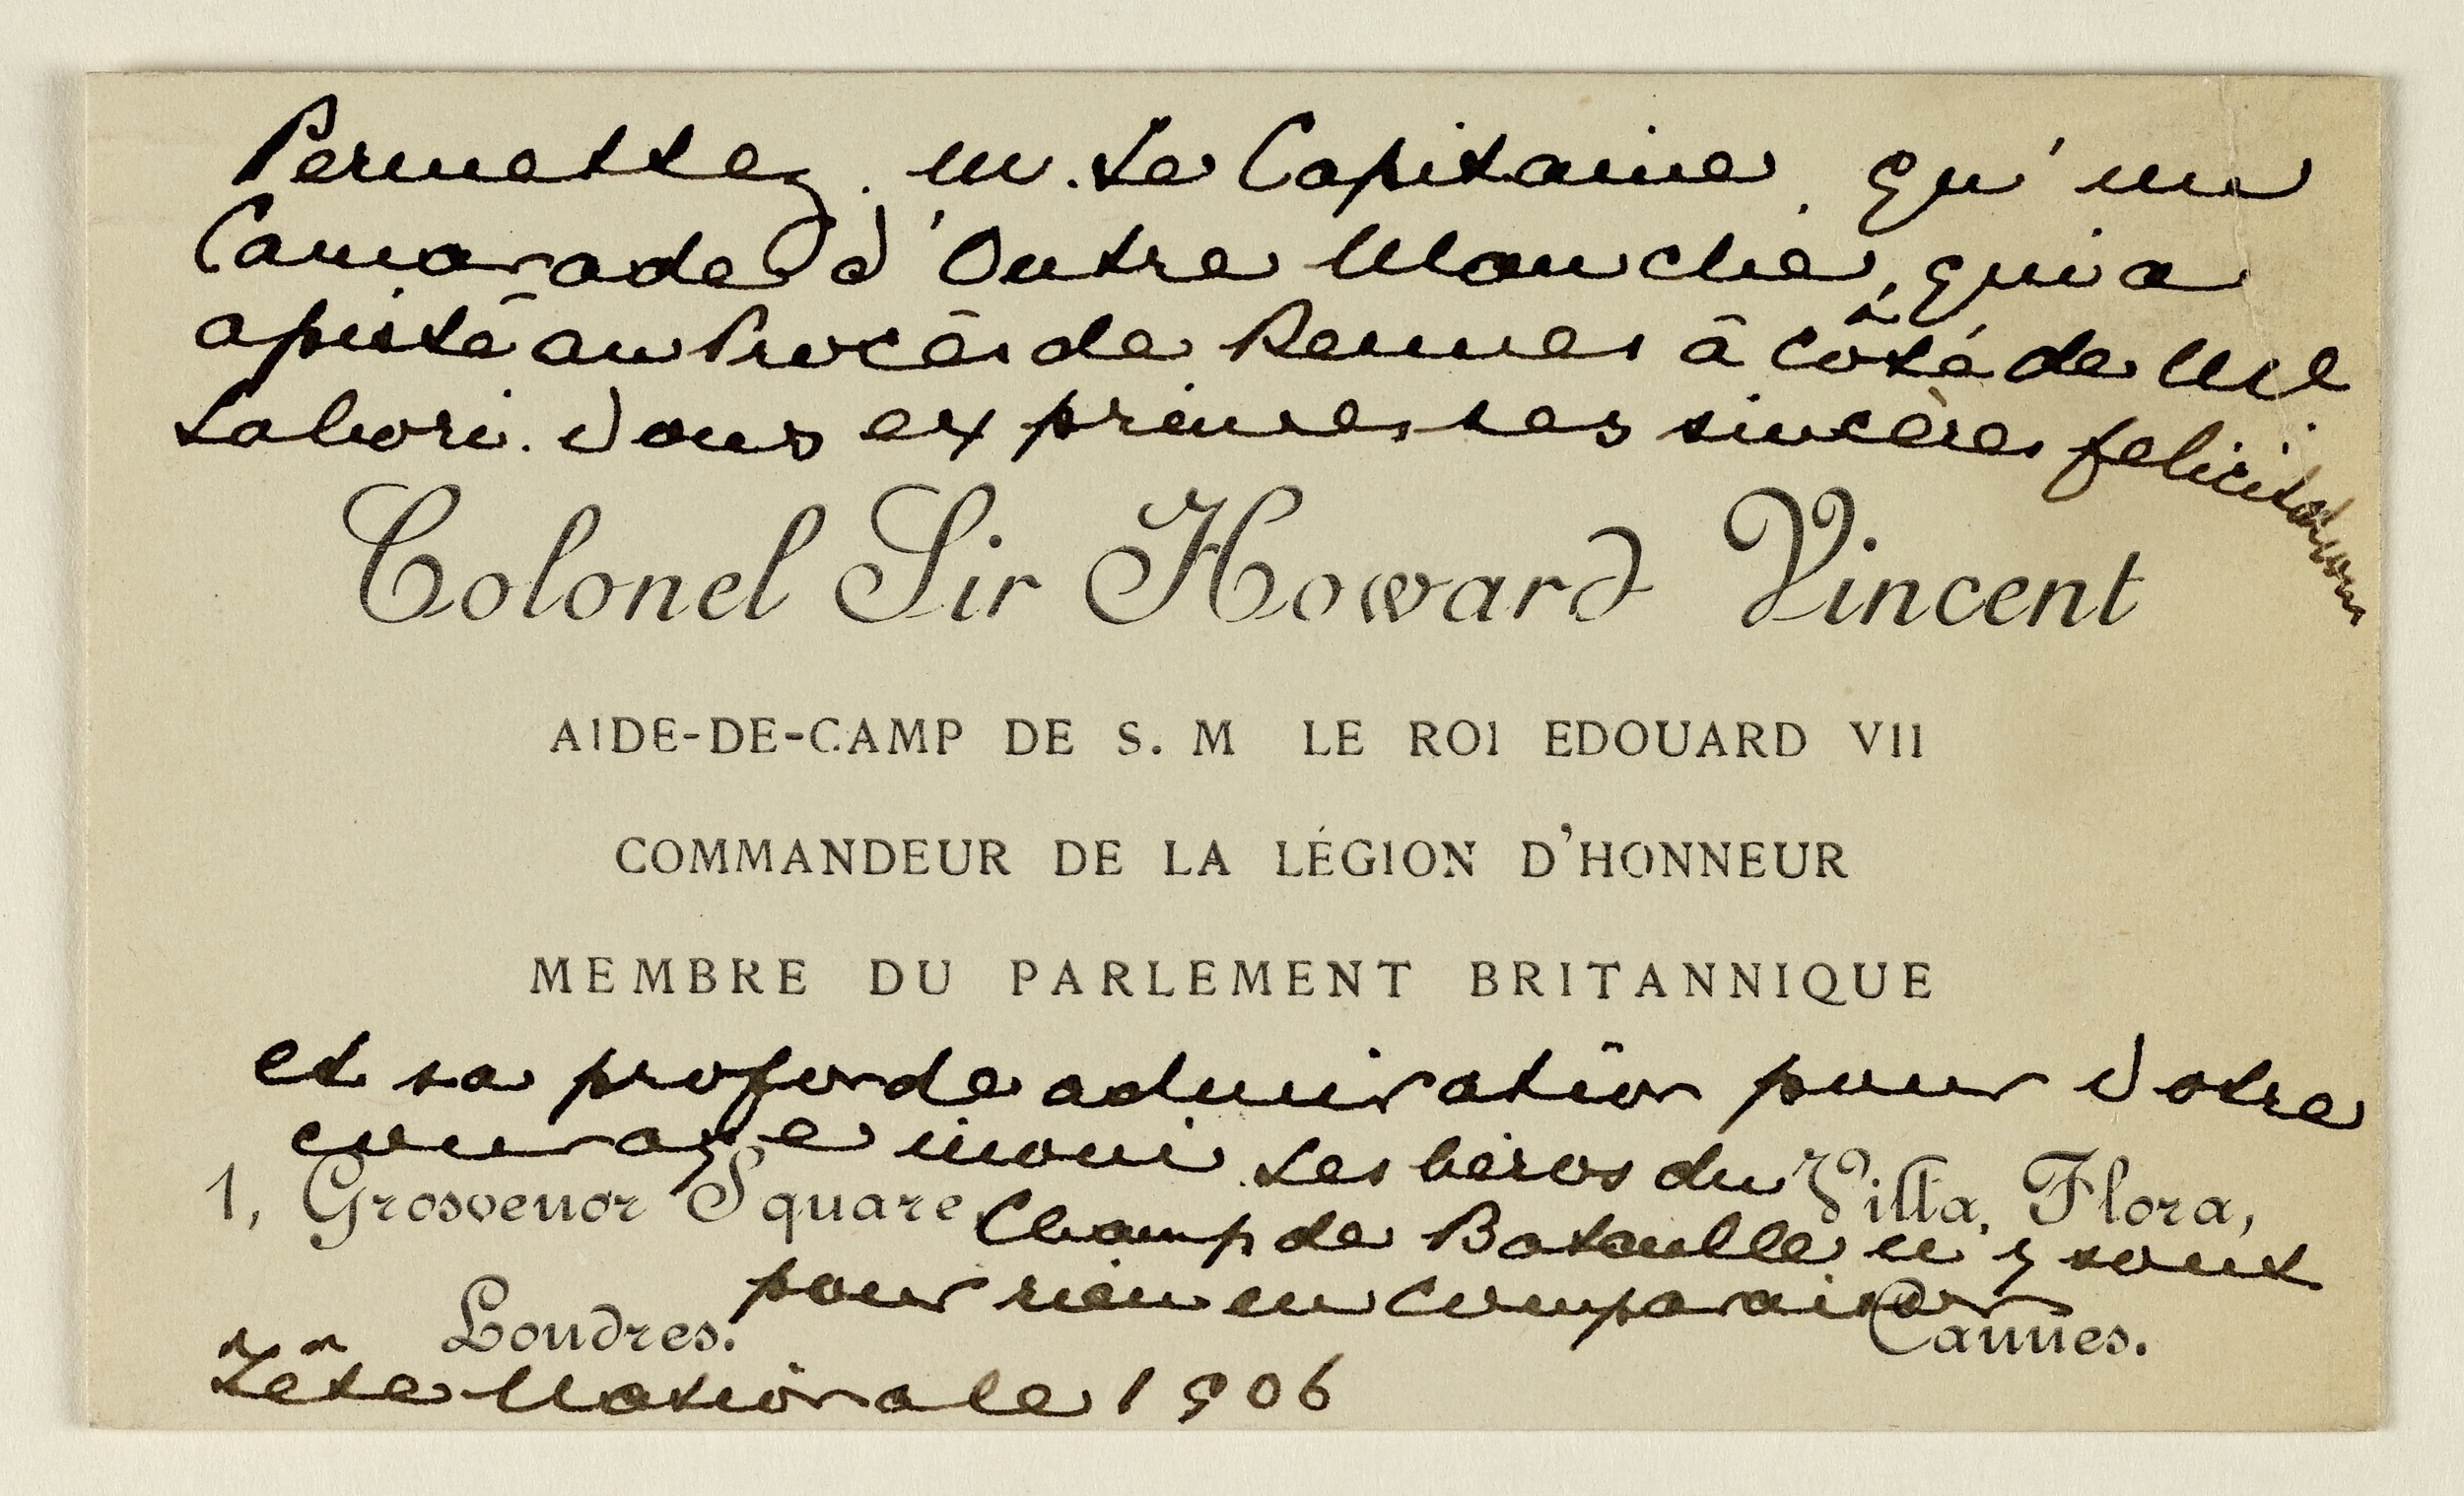 Permettez. m. Le Capitaine, qu'un
Camarade d'Outre Manche, qui a
assisté au Procès de Rennes à côté de Me
Labori. Vous exprimer ses sincères felicitations
Colonel Sir Howard Vincent
AIDE-DE-CAMP DE S. M LE ROI EDOUARD VII
COMMANDEUR DE LA LÉGION D'HONNEUR
MEMBRE DU PARLEMENT BRITANNIQUE
et sa profonde admiration pour Votre
courage inoui. Les héros du
1, Grosvenor Square, Villa, Flora,
Champ de Bataille n'y sont
pour rien en comparaison
Londres. Cannes.
Fête Nationale 1906